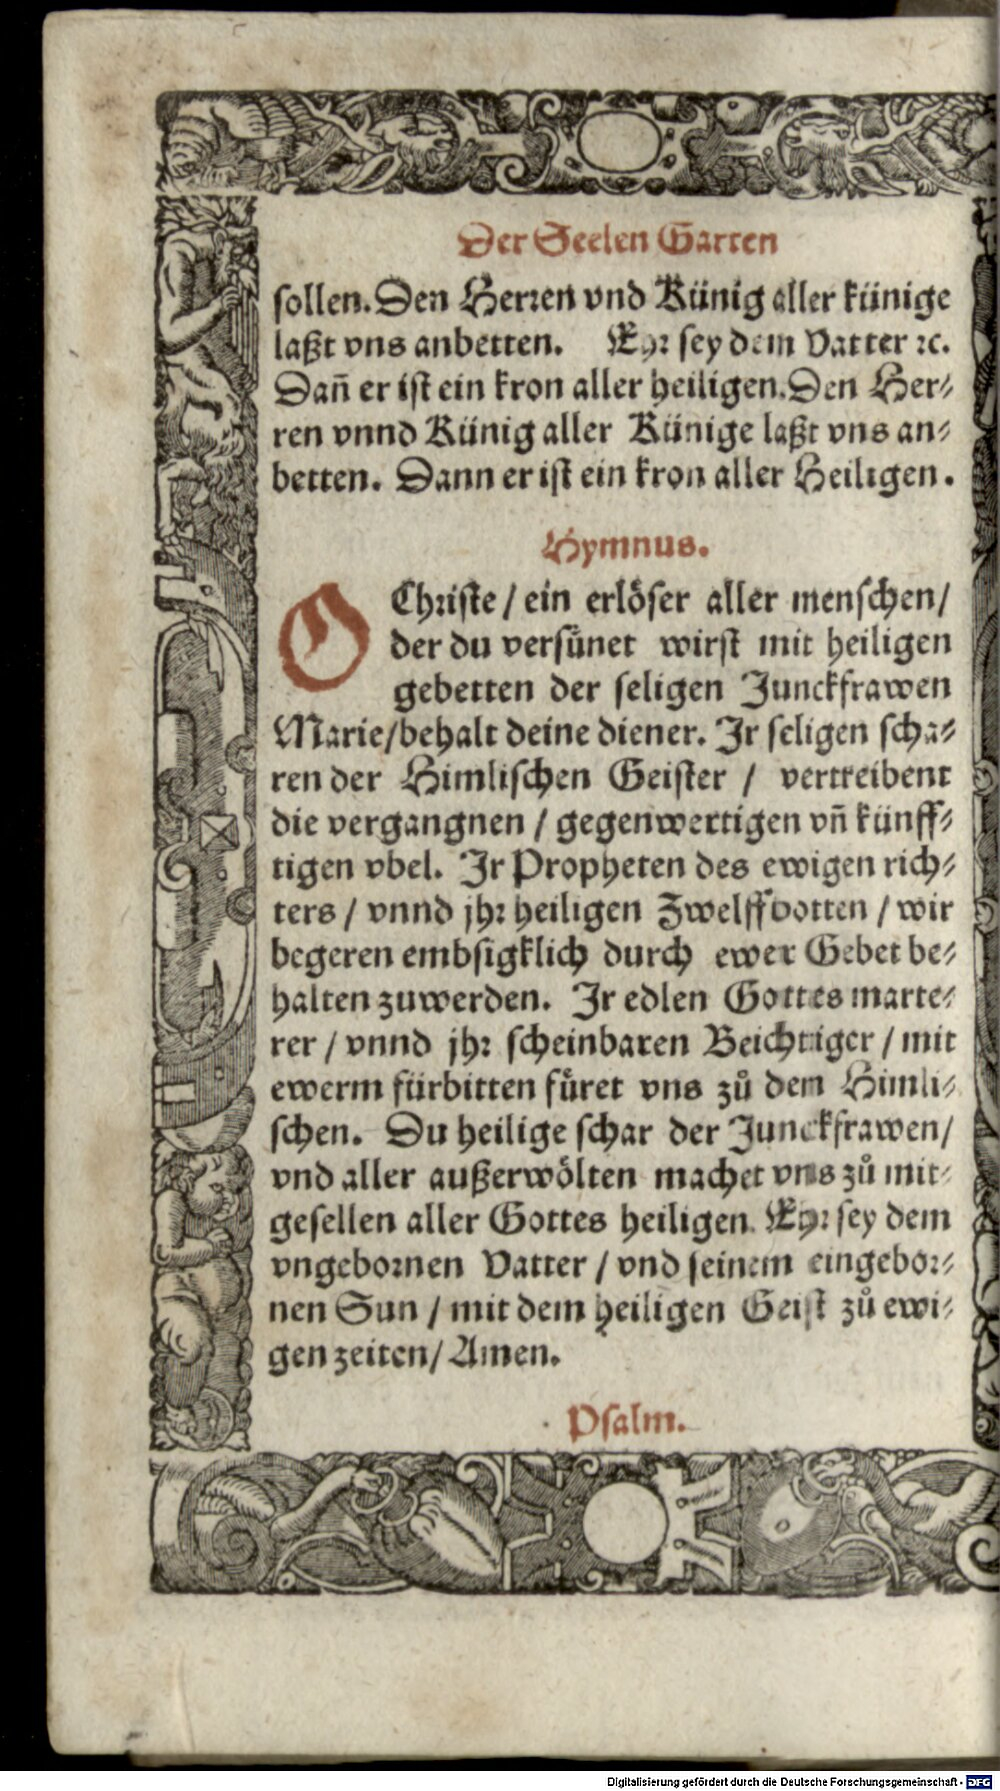 Der Seelen Garten
sollen. Den Herren vnd Künig aller künige
laßt vns anbetten. Eyr sey dem Vatter ꝛc.
Dañ er ist ein kron aller heiligen. Den Her⸗
ren vnnd Künig aller Künige laßt vns an⸗
betten. Dann er ist ein kron aller Heiligen.
Hymnus.
O Christe / ein erlöser aller menschen /
der du versünet wirst mit heiligen
gebetten der seligen Junckfrawen
Marie / behalt deine diener. Ir seligen scha⸗
ren der Himlischen Geister / vertreibent
die vergangnen / gegenwertigen vñ künff⸗
tigen vbel. Ir Propheten des ewigen rich⸗
ters / vnnd jhr heiligen Zwelffbotten / wir
begeren embsigklich durch ewer Gebet be⸗
halten zuwerden. Ir edlen Gottes marte⸗
rer / vnnd jhr scheinbaren Beichtiger / mit
ewerm fürbitten füret vns zů den Himli⸗
schen. Du heilige schar der Junckfrawen /
vnd aller außerwölten machet vns zů mit⸗
gesellen aller Gottes heiligen. Eyr sey dem
vngebornen Vatter / vnd seinem eingebor⸗
nen Sun / mit dem heiligen Geist zů ewi⸗
gen zeiten / Amen.
Psalm.
Digitalisierung gefördert durch die Deutsche Forschungsgemeinschaft - DFG